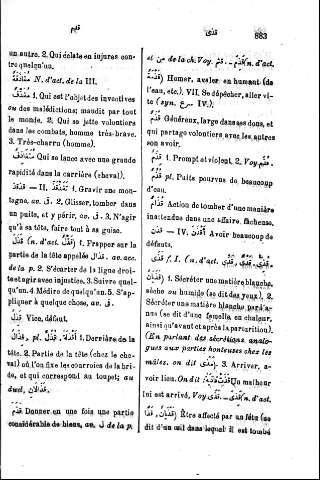 قذم
قذى
683
un autre. 2. Qui éclate en injures contre quelqu'un.
N. d'act. de la III.
1. Qui est l'objet des invectives
ou des malédictions; maudit par tout
le monde. 2. Qui se jette volontiers
dans les combats, homme très-brave.
3. Très-charru (homme).
Qui se lance avec une grande
rapidité dans la carrière (cheval).
قذل — II. 1. Gravir une montagne, av. ق. 2. Glisser, tomber dans
un puits, et y périr, av. ق. 3. N'agir
qu'à sa tête, faire tout à sa guise.
قذل (n. d'act. قذل) 1. Frapper sur la
partie de la tête appelée قذال, av. acc.
de la p. 2. S'écarter de la ligne droite et agir avec injustice. 3. Suivre quelqu'un. 4. Médire de quelqu'un. 5. S'appliquer à quelque chose, av.
قذل Vice, défaut.
قذال, pl. قذل, أقذلة 1. Derrière de la
tête. 2. Partie de la tête (chez le cheval) où l'on fixe les courroies de la bride, et qui correspond au toupet; au
duel, قذالان.
قذم Donner en une fois une partie
considérable de biens, av. ل de la p.
et من de la ch. Voy. قثم. — قذم (n. d'act.
قذم) Humer, avaler en humant (de
l'eau, etc.). VII. Se dépêcher, aller vite (syn. IV.).
قذم Généreux, large dans ses dons, et
qui partage volontiers avec les autres
son avoir.
قذم 1. Prompt et violent. 2. Voy. قثم.
قذم pl. Puits pourvus de beaucoup
d'eau.
Action de tomber d'une manière
inattendue dans une affaire fâcheuse.
قذن — IV. أقذن Avoir beaucoup de
défauts.
قذى f. I. (n. d'act. قذى, قذي,
قذيان) 1. Sécréter une matière blanche,
sèche ou humide (se dit des yeux). 2.
Sécréter une matière blanche par l'anus (se dit d'une femelle en chaleur,
ainsi qu'avant et après la parturition).
(En parlant des sécrétions analogues aux parties honteuses chez les
mâles, on dit مذى). 3. Arriver, avoir lieu. On dit: Un malheur
lui est arrivé, Voy. قدى. — قذي (n. d'act.
قذى, قذيان) Être affecté par un fétu (se
dit d'un œil dans lequel il est tombé